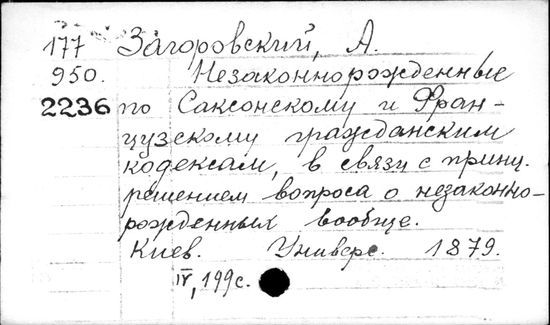 177 Загоровский, А.
950. Незаконнорожденные
2236 по Саксонскому и Фран-
цузскому гражданским
кодексам, в связи с принц.
решением вопроса о незаконно-
рожденных вообще.
Киев. Универс. 1879.
IV, 199с.